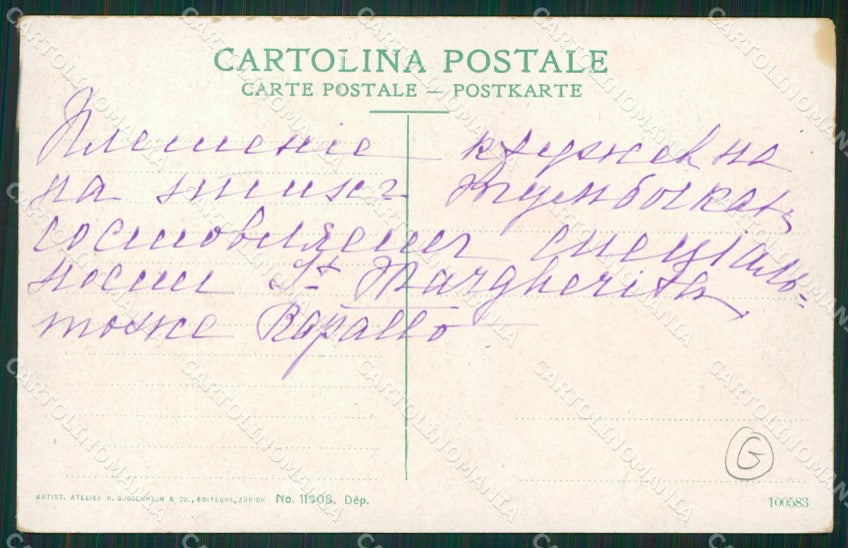 CARTOLINA POSTALE
CARTE POSTALE – POSTKARTE
Плетенiе кружев на
на этихъ тумбочкахъ
состовляетъ спецiаль-
ность St Margherita,
тоже Rapallo.
G
ARTIST. ATELIER H. GUGGENHEIM & CO., EDITEURS, ZÜRICH No. 11908. Dép.
100583
CARTOLINOMANIA